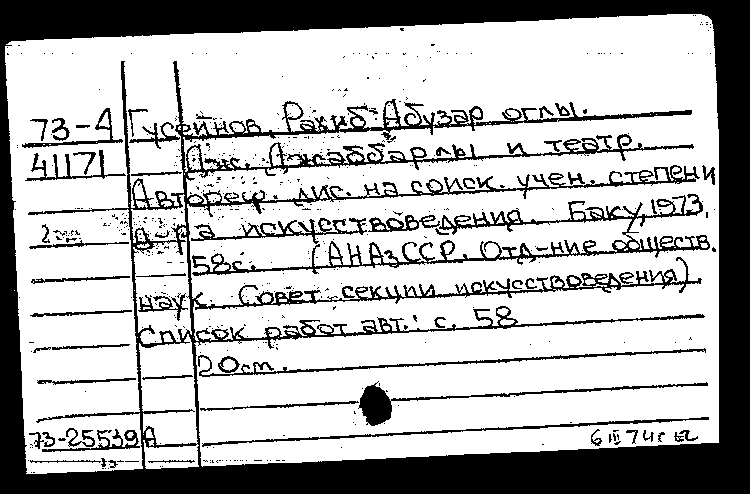 73-4 Гусейнов, Рахиб Абузар оглы.
41171 Дж. Джаббарлы и театр.
Автореф. дис. на соиск. учен. степени
д-ра искусствоведения. Баку, 1973.
58с. (АНАзССР. Отд-ние обществ.
наук. Совет секции искусствоведения)
Список работ авт.: с. 58
20cm.
73-25539 А
6 III 74г